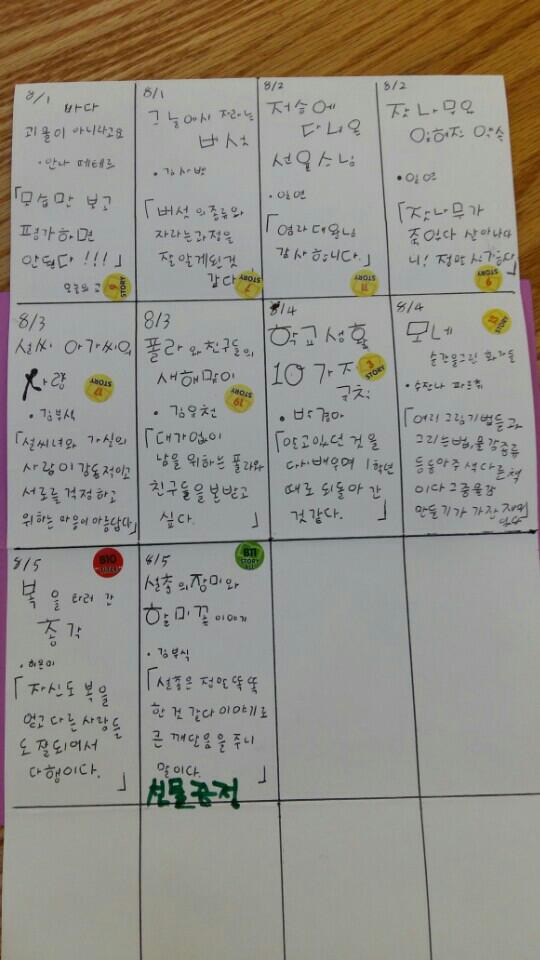 8/1
바다
괴물이 아니라고요
·안나 페테르
「모습만 보고
평가하면
안된다!!!」
오늘의 고
STORY 6
8/1
그늘에서 자라는
버섯
·김사범
「버섯의종류와
자라는과정을
잘알게된것
같다」
STORY 7
8/2
저승에
다녀온
선율스님
·일연
「염라대왕님
감사합니다.」
STORY 11
8/2
잣나무와
잊혀진 약속
·일연
「잣나무가
죽었다 살아나다
니! 정말 신기하다」
STORY 9
8/3
설씨 아가씨의
사랑
STORY 17
·김부식
「설씨녀와 가실의
사랑이 감동적이고
서로를 걱정하고
위하는 마음이아름답다」
8/3
폴라와친구들의
새해맞이
STORY 19
·김우천
「대가없이
남을 위하는 폴라와
친구들을 본받고
싶다.」
8/4
학교생활
10가지
규칙
STORY 3
·박경아
「알고있던 것을
다시배우며 1학년
때로 되돌아간
것같다.」
8/4
STORY 22
모네
순간을그린 화가들
·수잔나 파르취
「여러그림기법들과
그리는법,물감종류
등등아주색다른책
이다 그중물감
만들기가 가장재미
있다」
8/5
B10
복을 타러 간
총각
·허은미
「자신도 복을
얻고 다른사람들
도 잘되어서
다행이다.」
8/5
B11
STORY
설총의장미와
할미꽃이야기
·김부식
「설총은 정말 똑똑
한 것 같다 이야기로
큰 깨달음을 주니
말이다.」
선물증정